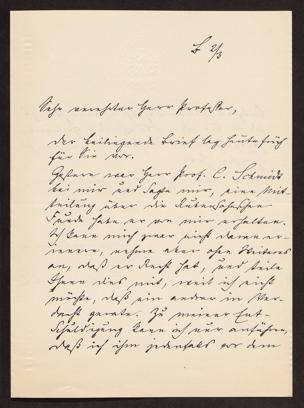 B 2/3
Sehr verehrter Herr Professor,
der beiliegende Brief lag heute früh
für Sie vor.
Gestern war Herr Prof. C. Schmidt
bei mir und sagte mir, eine Mit-
teilung über die
Funde habe er von mir erhalten.
Ich kann mich zwar nicht daran er-
innern, nehme aber ohne Weiteres
an, daß er Recht hat, und teile
Ihnen dies mit, weil ich nicht
möchte, daß ein anderer in Ver-
dacht gerate. Zu meiner Ent-
schuldigung kann ich nur anführen,
daß ich ihm jedenfalls vor dem